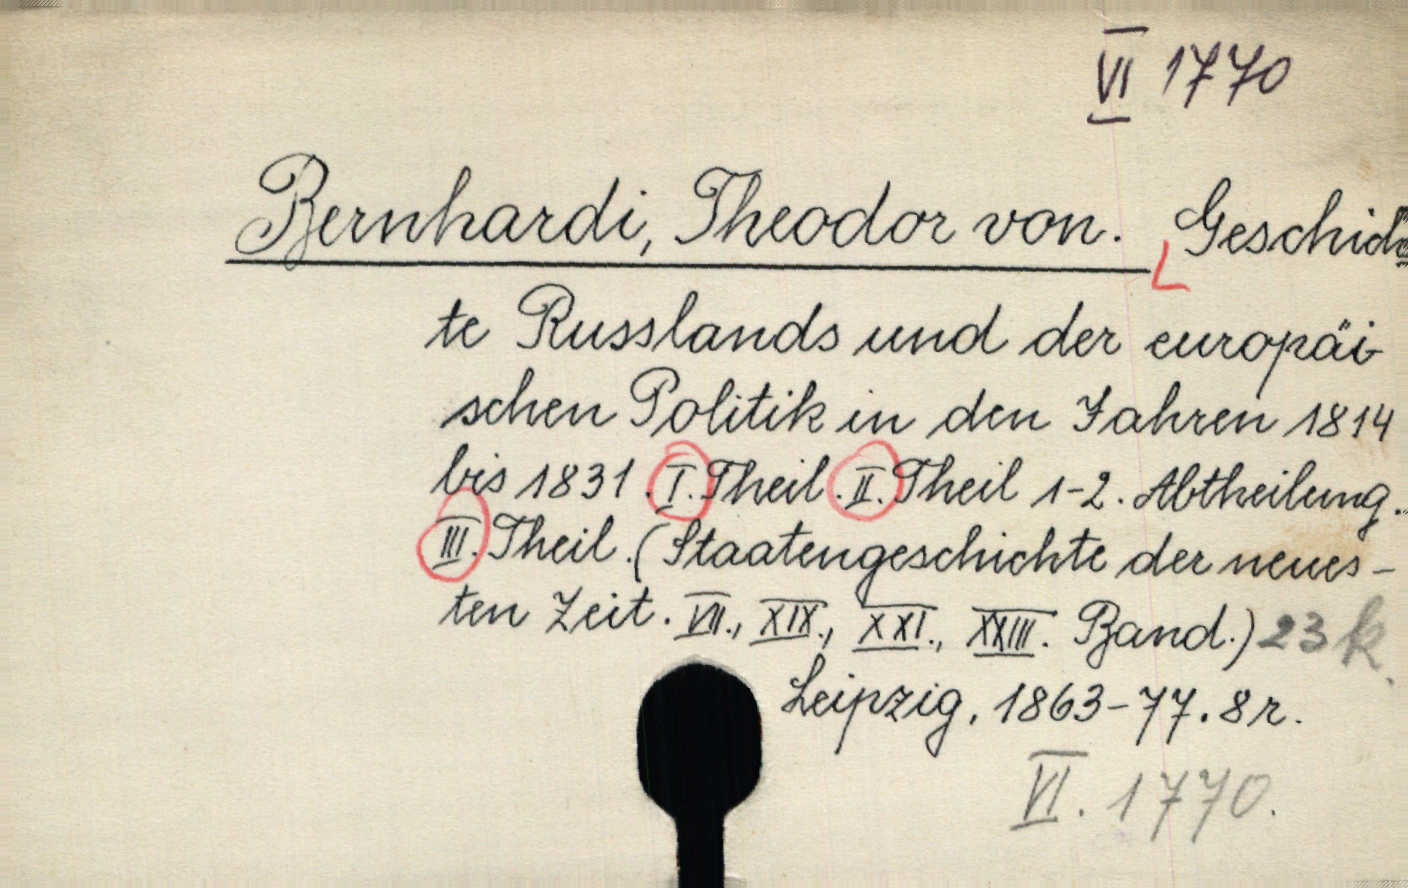 VI 1770
Bernhardi, Theodor von. Geschich
te Russlands und der europäi
schen Politik in den Jahren 1814
bis 1831. I. Theil. II. Theil 1-2. Abtheilung.
III. Theil. (Staatengeschichte der neues-
ten Zeit. VII., XIX., XXI., XXIII. Band.) 23 k.
Leipzig, 1863-77. 8r.
VI. 1770.